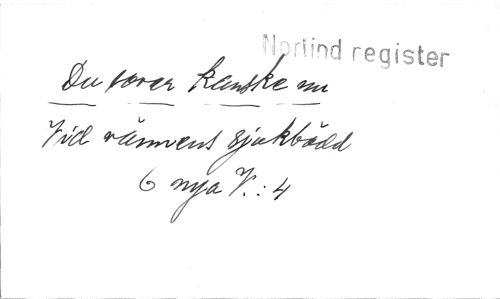 Norlind register
Du sover kanske nu
Vid vännens sjukbädd
6 nya V.: 4